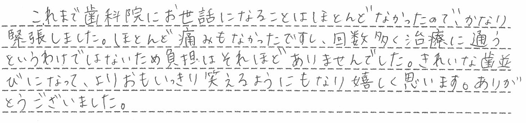 これまで歯科院にお世話になることはほとんどなかったので、かなり
緊張しました。ほとんど痛みもなかったですし、回数多く治療に通う
というわけではないため負担はそれほどありませんでした。きれいな歯並
びになって、よりおもいっきり笑えるようにもなり嬉しく思います。ありが
とうございました。